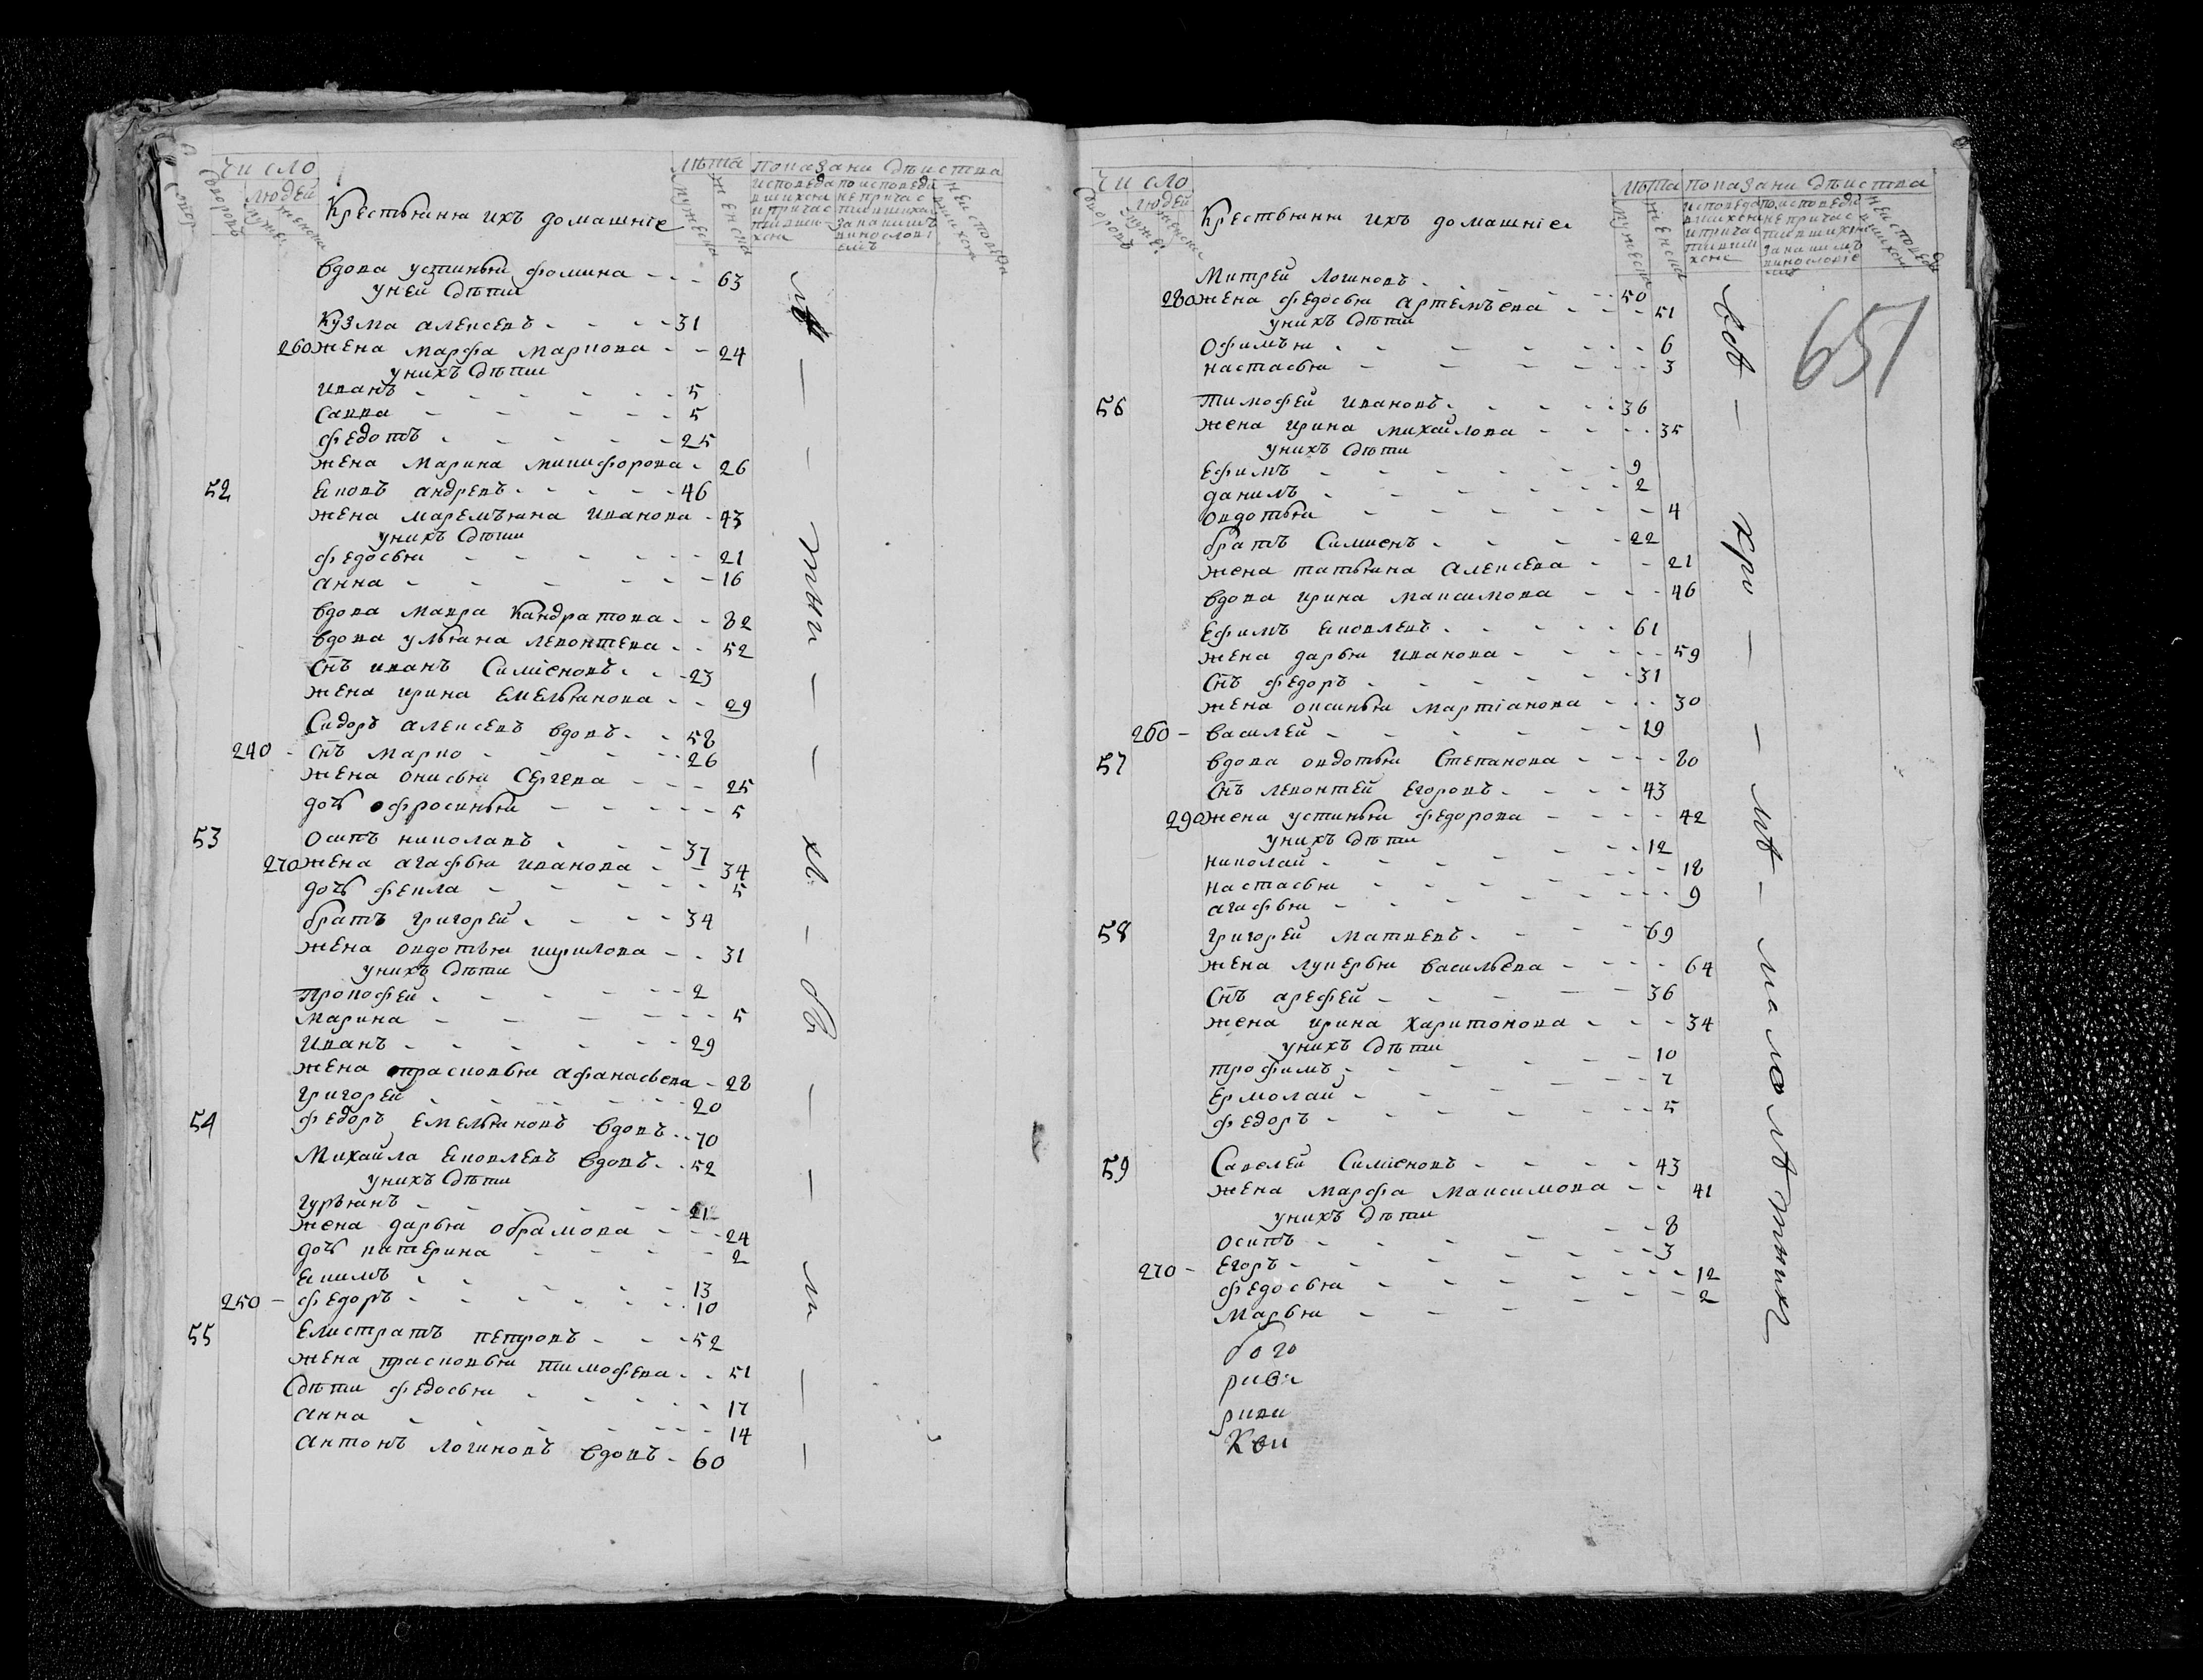 число
людей
дворовъ
мужес
женска
Крестьяня ихъ домашніе
лѣта
мужеска
женска
показани дѣиства
исповеда
вшихся
и причас
тившы
хся
по исповеди
не причас
тившихся
за какимъ
винослові
емъ
не исповеда
вшихся
вдова устинья фомина - - - 63
у неи дѣти
Кузма алексевъ - - - - 31
260 жена марфа маркова - - 24
у нихъ дѣти
иванъ - - - - 5
Савва - - - - 5
федотъ - - - - 25
жена марина микифорова - 26
52 яковъ андревъ - - - - 46
жена маремьяна иванова - 43
у нихъ дѣти
федосья - - - - 21
анна - - - - 16
вдова мавра кандратова - - 82
вдова ульяна левонтева - - 52
Снъ иванъ Симіеновъ - - 23
жена ирина емельянова - - 29
Сидоръ алексевъ вдовъ - - 58
240 - Снъ марко - - - - 26
жена онисья Сергева - - - 25
дочь офросинья - - - - 5
53 Осипъ николавъ - - - 37
270 жена агафья иванова - - 34
дочь фекла - - - - 5
братъ григорей - - - - 34
жена овдотья кирилова - - 31
у нихъ дѣти
Прокофей - - - - 2
Марина - - - - 5
Иванъ - - - - 29
жена прасковья афанасьева - 28
григорей - - - - 20
54 федоръ емельяновъ вдовъ - - 70
Михаила яковлевъ вдовъ - - 52
у нихъ дѣти
гурьянъ - - - -
жена дарья обрамова - - - 24
дочь катерина - - - - 2
якимъ - - - - 13
250 - федоръ - - - - 10
55 Елистратъ петровъ - - - 52
жена прасковья тимофева - - 51
дѣти федосья - - - - 17
анна - - - - 14
антонъ логиновъ вдовъ - 60
число
людей
дворовъ
мужес
женска
Крестьяня ихъ домашніе
лѣта
мужеска
женска
показани дѣиства
исповеда
вшихся
и причас
тивши
хся
по исповеди
не причас
тившихся
за какимъ
винословіе
емъ
не исповеда
вшихся
651
Митрей логиновъ - - - 50
280 жена федосья артемъева - - - 51
у нихъ дѣти
Офимья - - - - 6
настасья - - - - 3
56 тимофей ивановъ - - - - 36
жена ирина михайлова - - - 35
у нихъ дѣти
ефимъ - - - - 9
данилъ - - - - 2
овдотья - - - - 4
братъ Симиенъ - - - - 22
жена татьяна алексева - - 21
вдова ирина максимова - - - 46
ефимъ яковлевъ - - - - 61
жена дарья иванова - - - - 59
Снъ федоръ - - - - 31
жена оксинья мартіанова - - - 30
260 - василей - - - - 19
57 вдова овдотья Степанова - - - - 80
Снъ левонтей егоровъ - - - - 43
290 жена устинья федорова - - - - 42
у нихъ дѣти
николаи - - - - 12
настасья - - - - 18
агафья - - - - 9
58 григорей матвевъ - - - - 69
жена лукерья васильева - - - - 64
Снъ арефей - - - - 36
жена ирина харитонова - - - 34
у нихъ дѣти
трофимъ - - - - 10
ермолаи - - - - 7
федоръ - - - - 5
59 Савелей Симіеновъ - - - - 43
жена марфа максимова - - 41
у нихъ дѣти
осипъ - - - - 8
270 - егоръ - - - - 3
федосья - - - - 12
марья - - - - 2